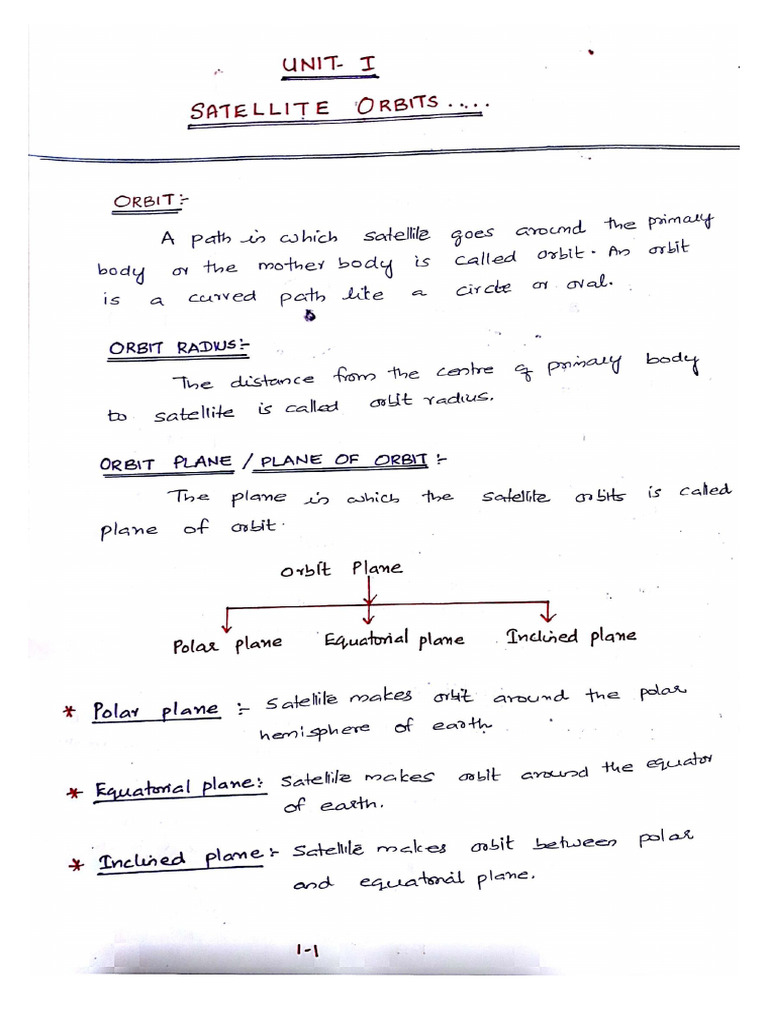 UNIT- I
SATELLITE ORBITS.....
ORBIT:-
A path in which satellite goes around the primary
body or the mother body is called orbit. An orbit
is a curved path like a circle or oval.
ORBIT RADIUS:-
The distance from the centre of primary body
to satellite is called orbit radius.
ORBIT PLANE / PLANE OF ORBIT:-
The plane in which the satellite orbits is called
plane of orbit.
Orbit Plane
Polar plane Equatorial plane Inclined plane
* Polar plane :- Satellite makes orbit around the polar
hemisphere of earth
* Equatorial plane:- Satellite makes orbit around the equator
of earth.
* Inclined plane:- Satellite makes orbit between polar
and equatorial plane.
1-1